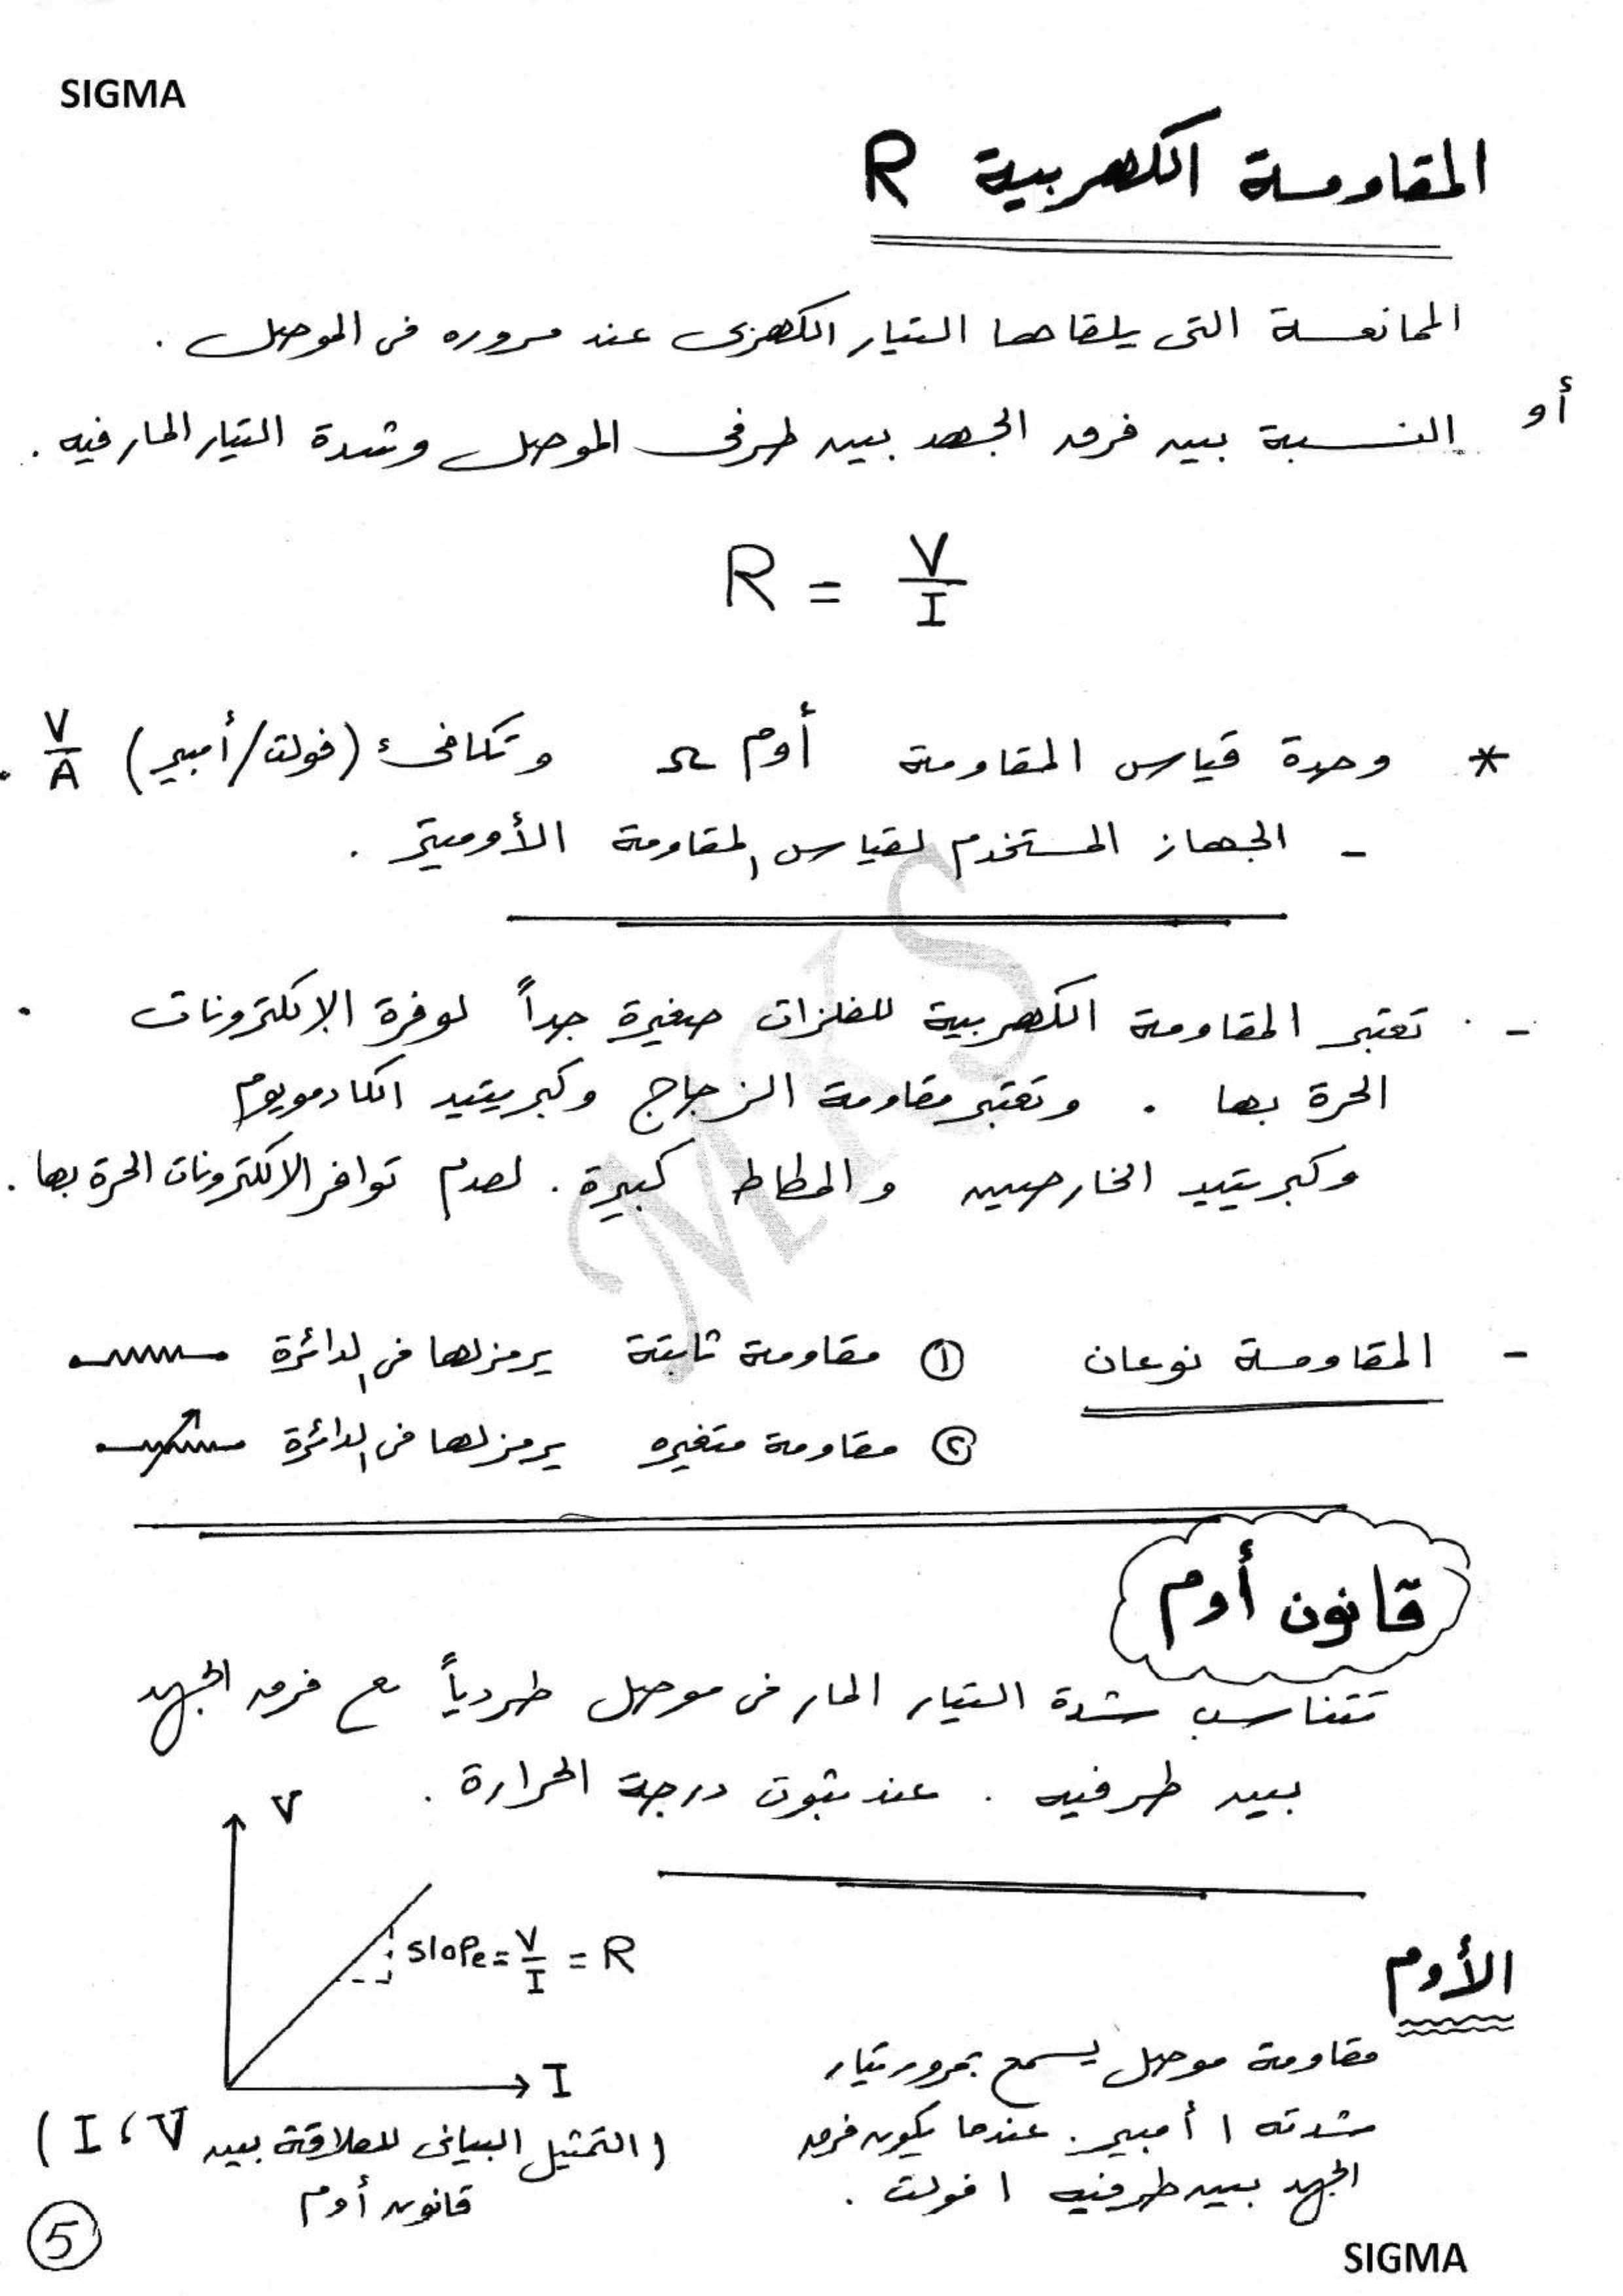 SIGMA
المقاومة الكهربية R
الممانعة التى يلقاها التيار الكهربى عند مروره فى الموصل .
أو النسبة بين فرق الجهد بين طرفى الموصل وشدة التيار المار فيه .
R = V/I
* وحدة قياس المقاومة أوم Ω وتكافئ (فولت/أمبير) V/A .
- الجهاز المستخدم لقياس المقاومة الأوميتر .
- تعتبر المقاومة الكهربية للفلزات صغيرة جداً لوفرة الإلكترونات
الحرة بها . وتعتبر مقاومة الزجاج وكبريتيد الكادمويوم
وكبريتيد الخارصين والمطاط كبيرة . لعدم توافر الالكترونات الحرة بها .
- المقاومة نوعان ① مقاومة ثابتة يرمز لها فى الدائرة
② مقاومة متغيره يرمز لها فى الدائرة
قانون أوم
تتناسب شدة التيار المار فى موصل طردياً مع فرق الجهد
بين طرفيه . عند ثبوت درجة الحرارة .
V
slope = V/I = R
I
(التمثيل البيانى للعلاقة بين I ، V)
قانون أوم
الأوم
مقاومة موصل يسمح بمرور تيار
شدته ١ أمبير . عندما يكون فرق
الجهد بين طرفيه ١ فولت .
5
SIGMA
MKS